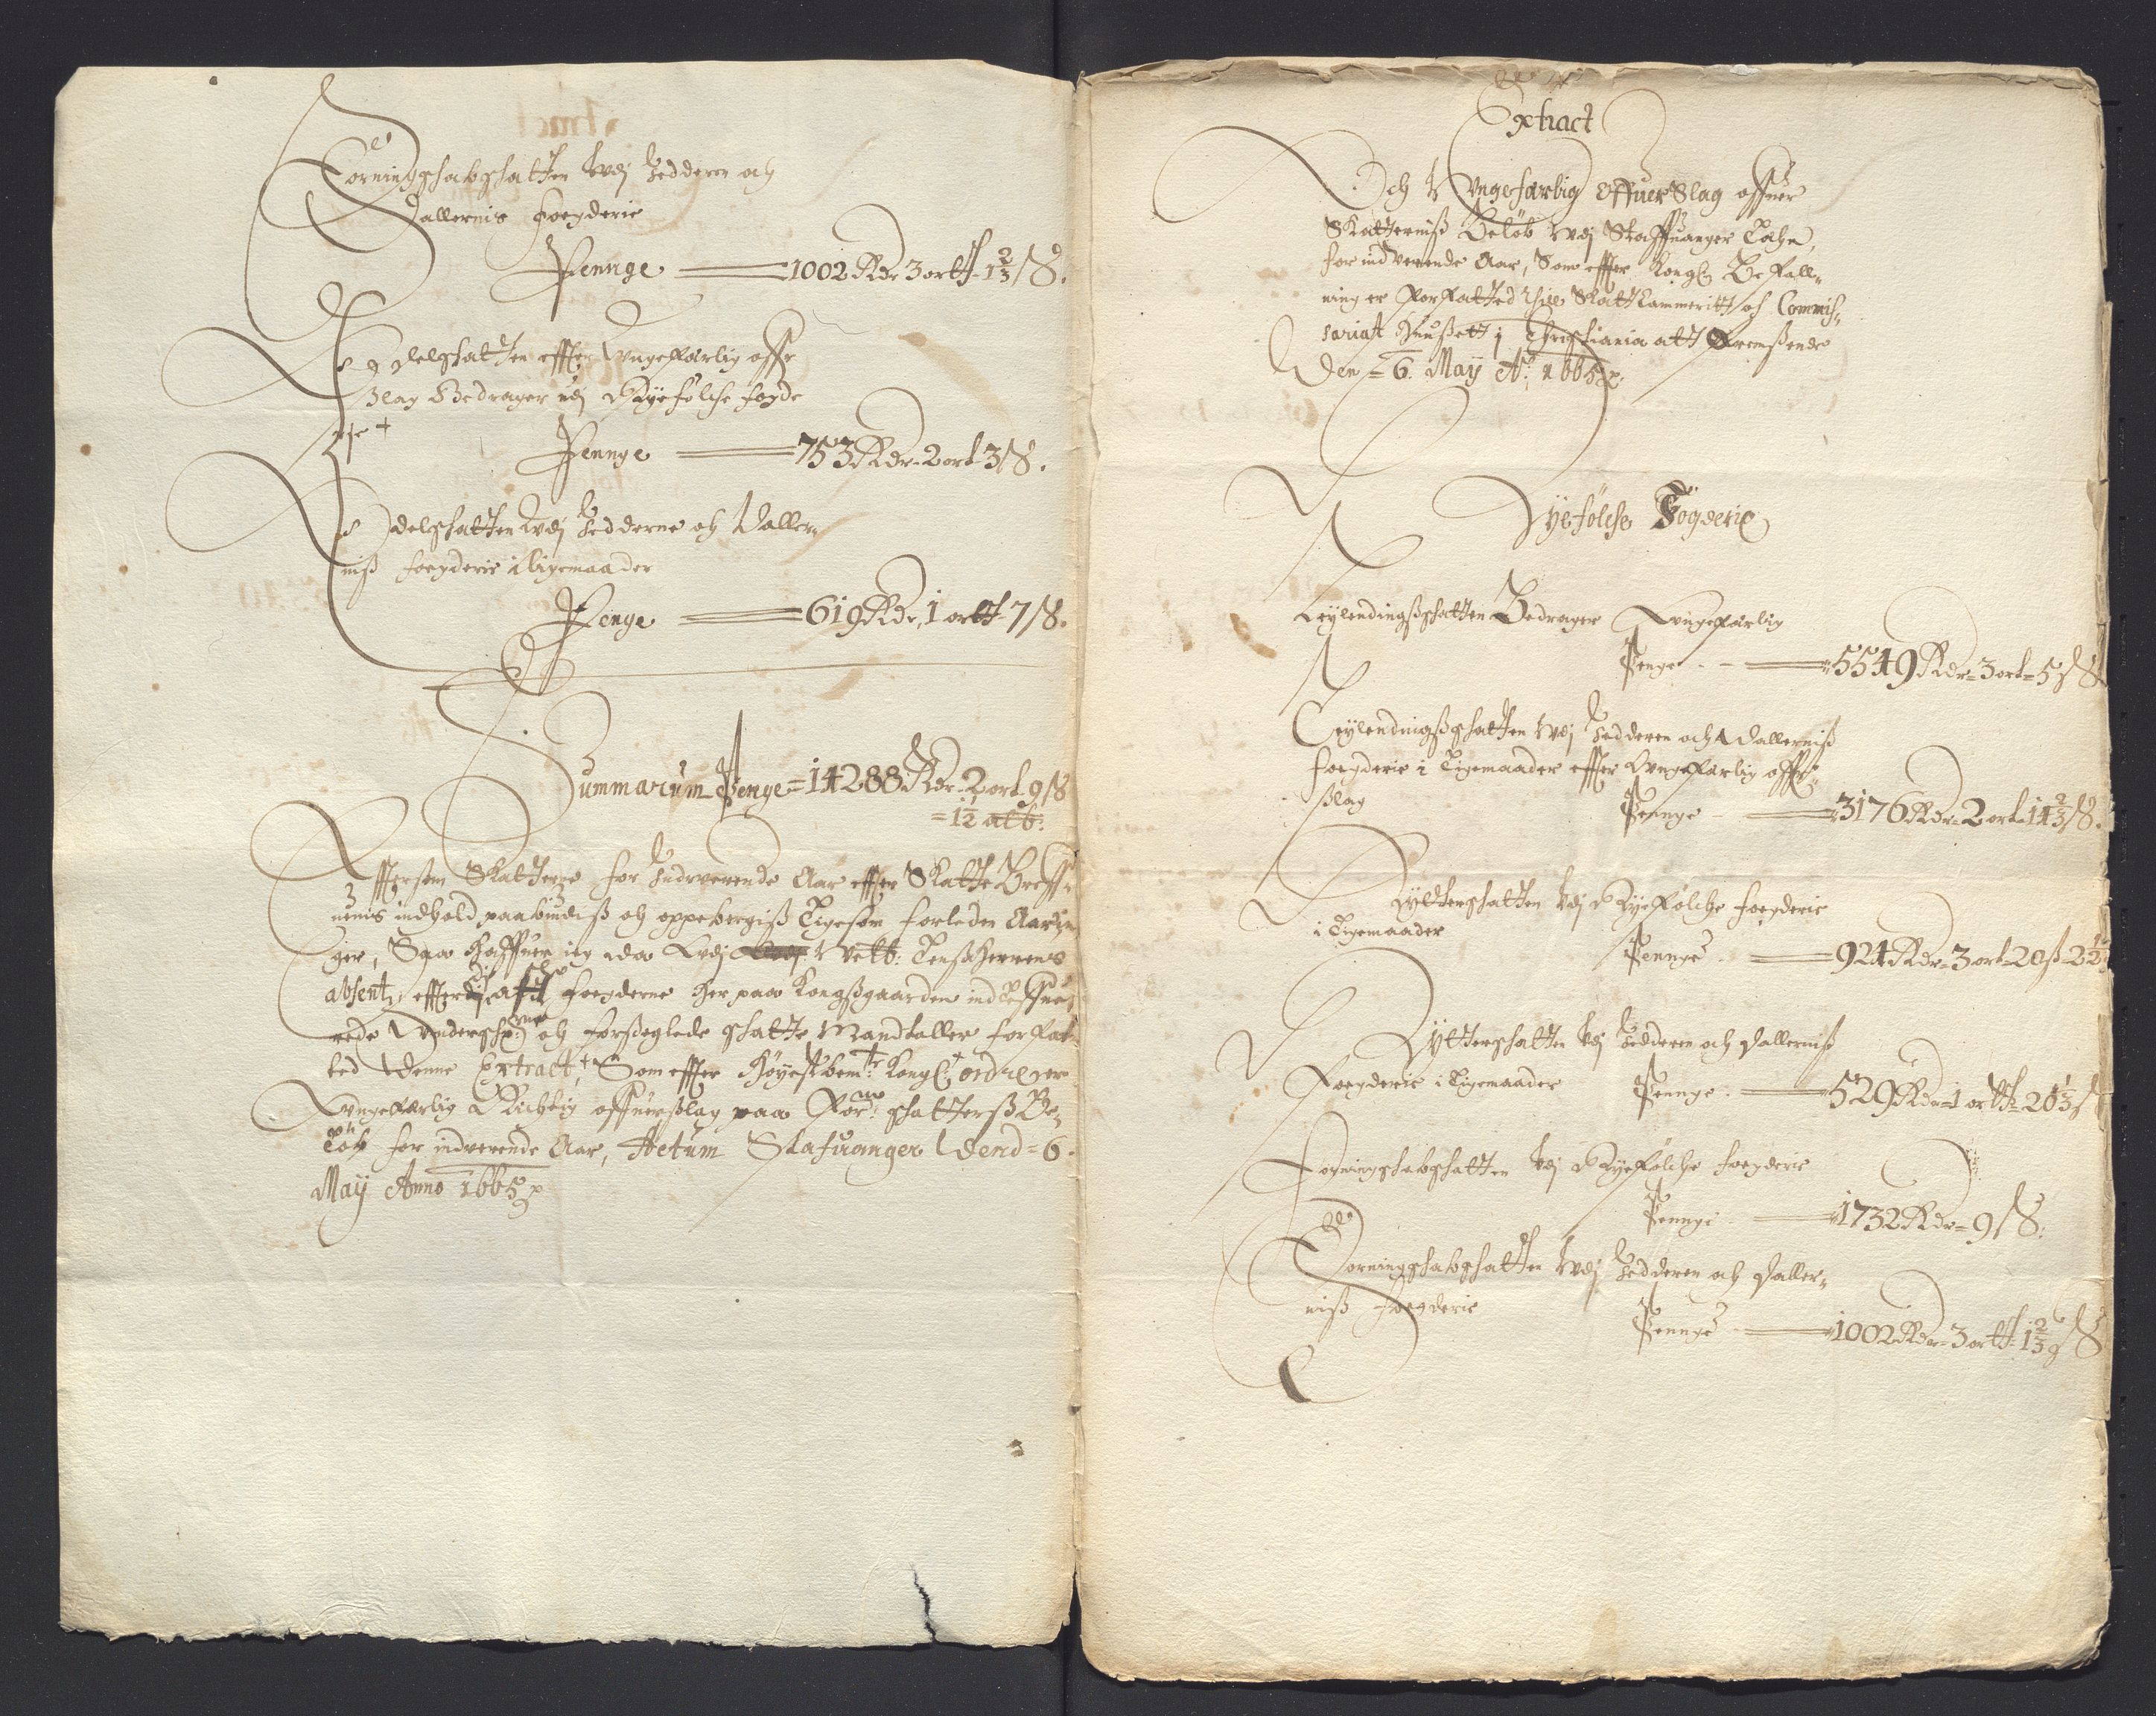 Korningshabschatten udj Jedderen och
Dallernis fougderie
Pennge 1002 Rdr 3 ortt 1 2/3 ß.
Odelschatten effter Ungefærlig offr
slag Bedrager udj Ryefølche fogde
rje +
Pennge 753 Rdr 2 ort 3 ß.
Odelschatten udj Jedderne och Daller-
niß fougderie i ligemaader
Penge 619 Rdr, 1 ortt 7 ß.
Summarum Penge = 14288 Rdr 2 ort 9 ß
= 1½ alb:
Efftersom Skatterne for Inderverende Aar effter Skatte Breff-
uenis indhold, paabudiß och oppebergiß Ligesom forleden Aar
ger, Saa haffuer ieg da udj Velb: Lenßherrens
absent, effter fougderne her paa Kongßgaarden indleffue-
rede Underschr: och forseglede schatte Mandtaller forfat-
ted denne Extract, Som effter Høyestbem:te Kongl: ordre er
Ungefærlig Richtig offuerslag paa For:ne schatterß Be-
løb for inderverende Aar, Actum Stafuanger dend = 6
Maij Anno 1665
Extract
Och Ungefærlig OffuerSlag offuer
Skatterniß Beløb udj Staffuanger Læhn,
for inderverende Aar, Som effter Kongl: Befall-
ning er Forfatted thil Skattkammeritt och Commis-
sariat Huußett i Christiania att fremsende
Den = 6. Maij Ao: 1665
Ryefølche Fögderie
Leylendingßschatten Bedrager Ungefærlig
Penge 5549 Rdr = 3 ort = 5 ß
Leylendingßschatten udj Jedderen och Dallerniß
fougderie i Ligemaader effter Ungefærlig offr-
ßlag Pennge 3176 Rdr = 2 ort 14 2/3 ß.
Rytterschatten udj Ryefølche fougderie
i Ligemaader Pennge 924 Rdr = 3 ort = 20 ß
Rytterschatten udj Jedderen och Dallerniß
Fougderie i Ligemaader Pennge 529 Rdr = 1 ortt = 20 1/3 ß
Korningshabschatten udj Ryefølche fougderie
Pennge 1732 Rdr = 9 ß.
Korningshabschatten udj Jedderen och Daller-
niß fougderie Pennge 1002 Rdr = 3 ortt = 1 2/3 ß